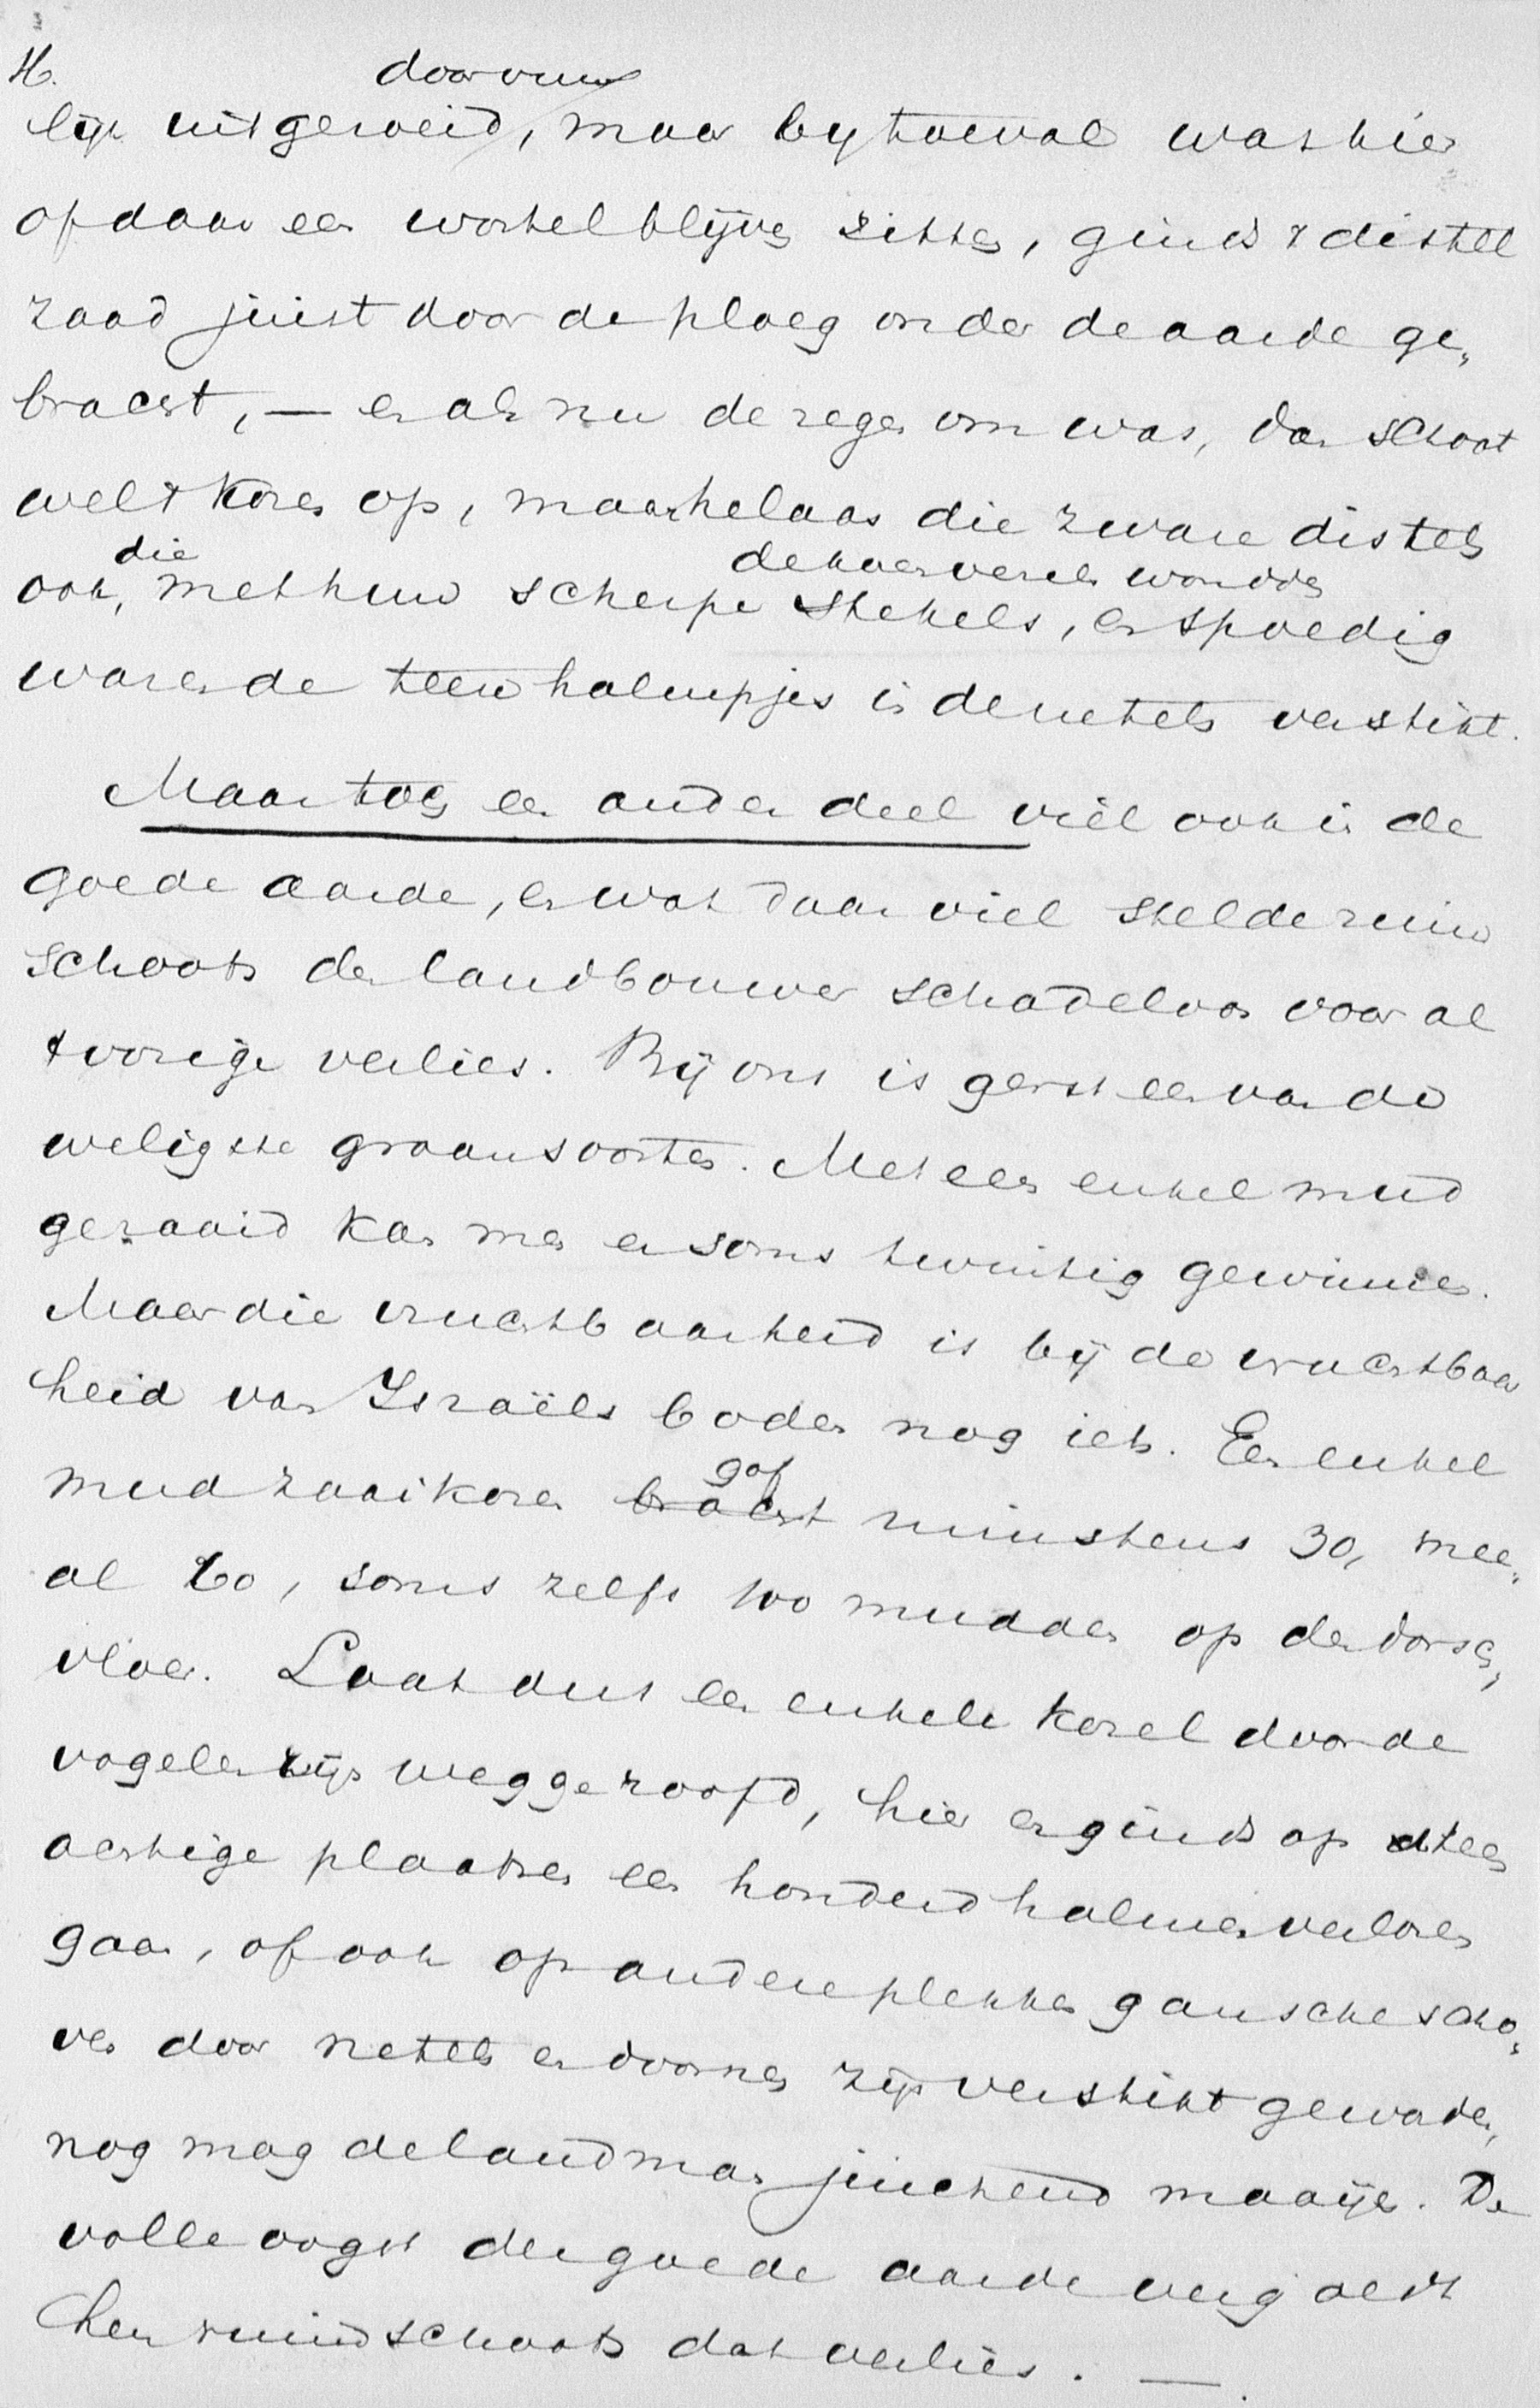 H.
door vuur
lijk uitgeroeid, maar by toeval was hier
of daar een wortel blijven zitten, ginds 't distel
zaad juist door de ploeg onder de aarde ge„
bracht, — en als nu de regen om was, dan schoot
wel 't koren op, maar helaas die zware distels
die de koren wondden
ook, met hun scherpe stekels, en spoedig
waren de teere halmpjes in de netels verstikt.
Maar toch een ander deel viel ook in de
goede aarde, en wat daar viel stelde ruim
schoots den landbouwer schadeloos voor al
't vorige verlies. Bij ons is gerst een van de
weligste graansoorten. Met een enkel mud
gezaaid kan men er soms twintig gewinnen.
Maar die vruchtbaarheid is bij de vruchtbaar
heid van Israëls bodem nog iets. Een enkel
gaf
mud zaaikoren bracht minstens 30, mee„
al 60, soms zelfs 100 mudden op den dorsch„
vloer. Laat dus een enkele korel door de
vogelen zijn weggeroofd, hier en ginds op steen
achtige plaatsen een honderd halmen verloren
gaan, of ook op andere plekken gansche scho„
ven door netels en doornen zijn verstikt geworden,
nog mag de landman juichend maaijen. De
volle oogst der goede aarde vergoedt
hem ruimdschoots dat verlies. —